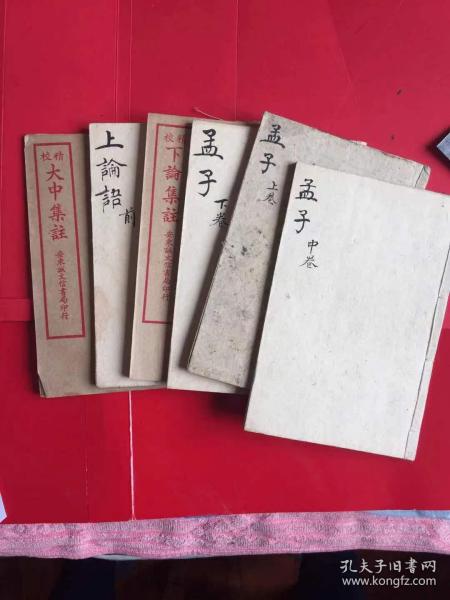 精校
大中集註
安東誠文信書局印行
上論語
前
精校
下論集註
安東誠文信書局印行
孟子
下卷
孟子
上卷
孟子
中卷
孔夫子旧书网
www.kongfz.com